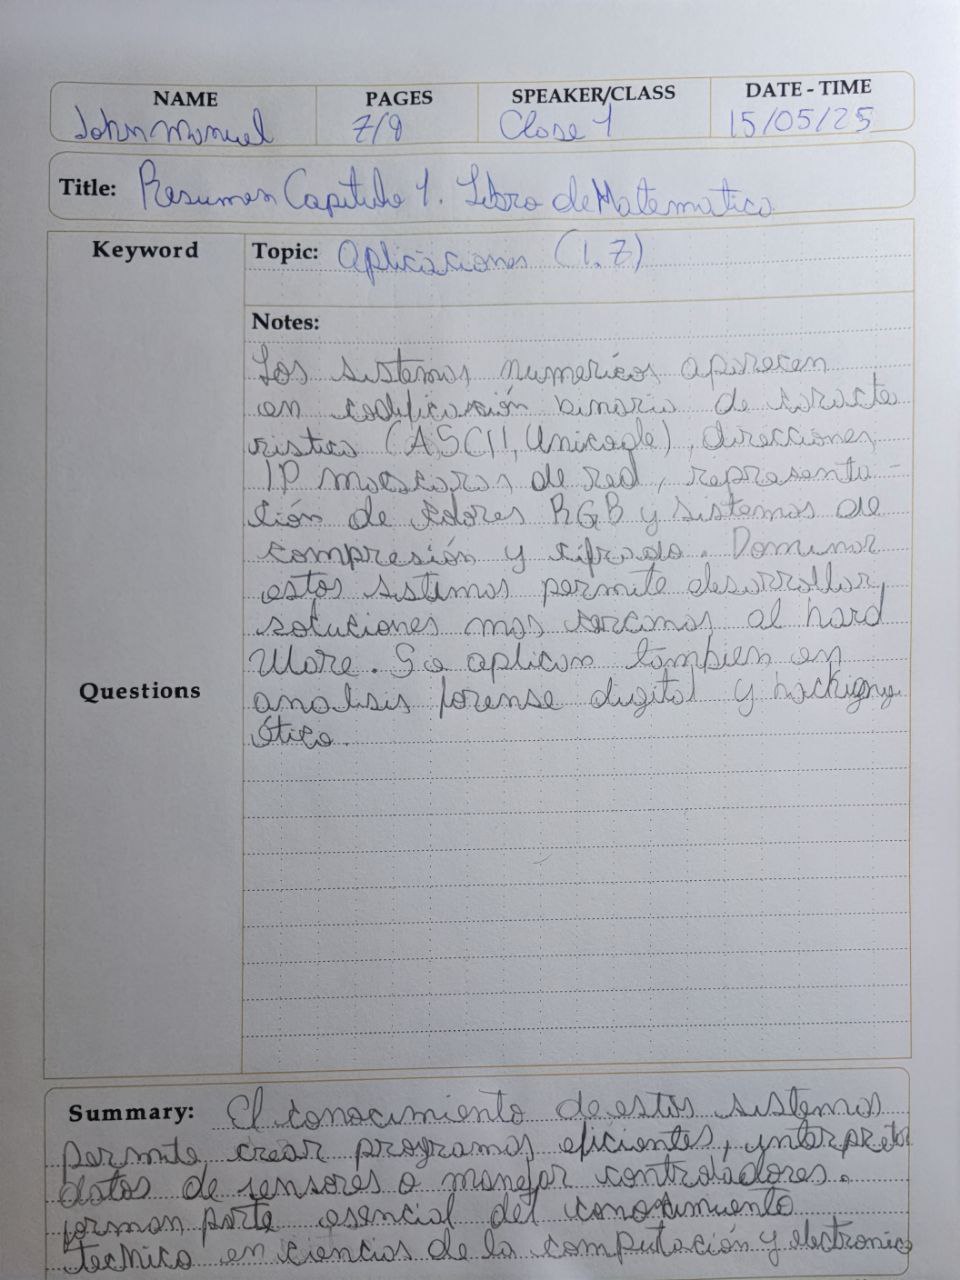 NAME PAGES SPEAKER/CLASS DATE - TIME
John Manuel 7/8 Clase 1 15/05/25
Title: Resumen Capitulo 1. Libro de Matematica
Keyword
Topic: Aplicaciones (1.7)
Notes:
Los sistemas numericos aparecen
en codificación binaria de caracte
ristica (ASCII, Unicode), direcciones,
IP mascaras de red, representa -
ción de colores RGB y sistemas de
compresión y cifrado. Dominar
estos sistemas permite desarrollar,
soluciones mas cercanas al hard
Ware. Se aplican tambien en
analisis forense digital y hacking
ético.
Questions
Summary: El conocimiento de estos sistemas
permite crear programas eficientes, interpretar
datos de sensores o manejar controladores.
forman parte esencial del conocimiento
tecnico en ciencias de la computación y electronica